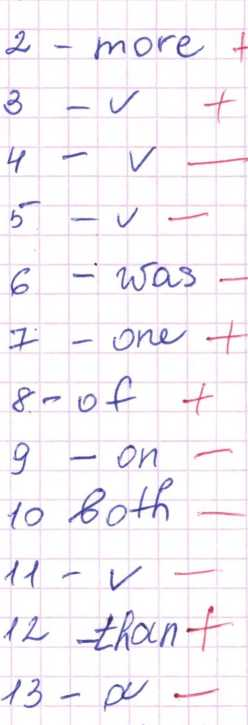 2 - more +
3 - v +
4 - v -
5 - v -
6 - was -
7 - one +
8 - of +
9 - on -
10 both -
11 - v -
12 than +
13 - a -